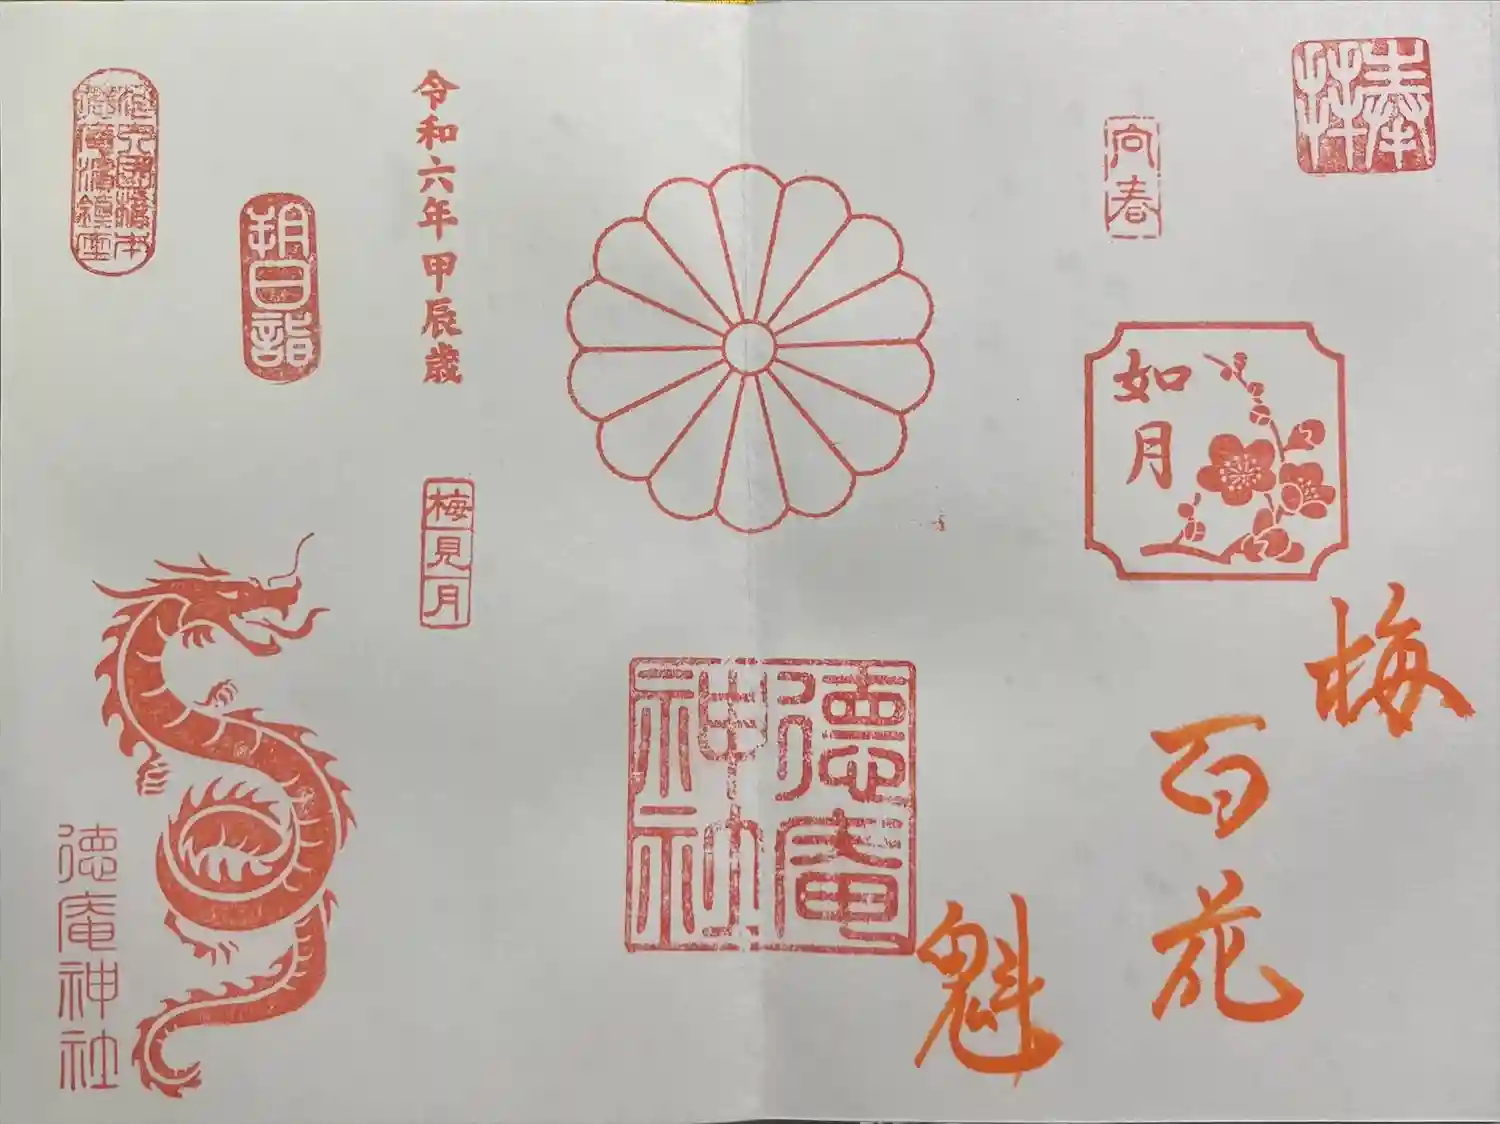 奉拝
向春
如月
梅
百花
魁
徳庵
神社
令和六年甲辰歳
梅見月
朔日詣
徳庵濱鎮座
徳庵神社